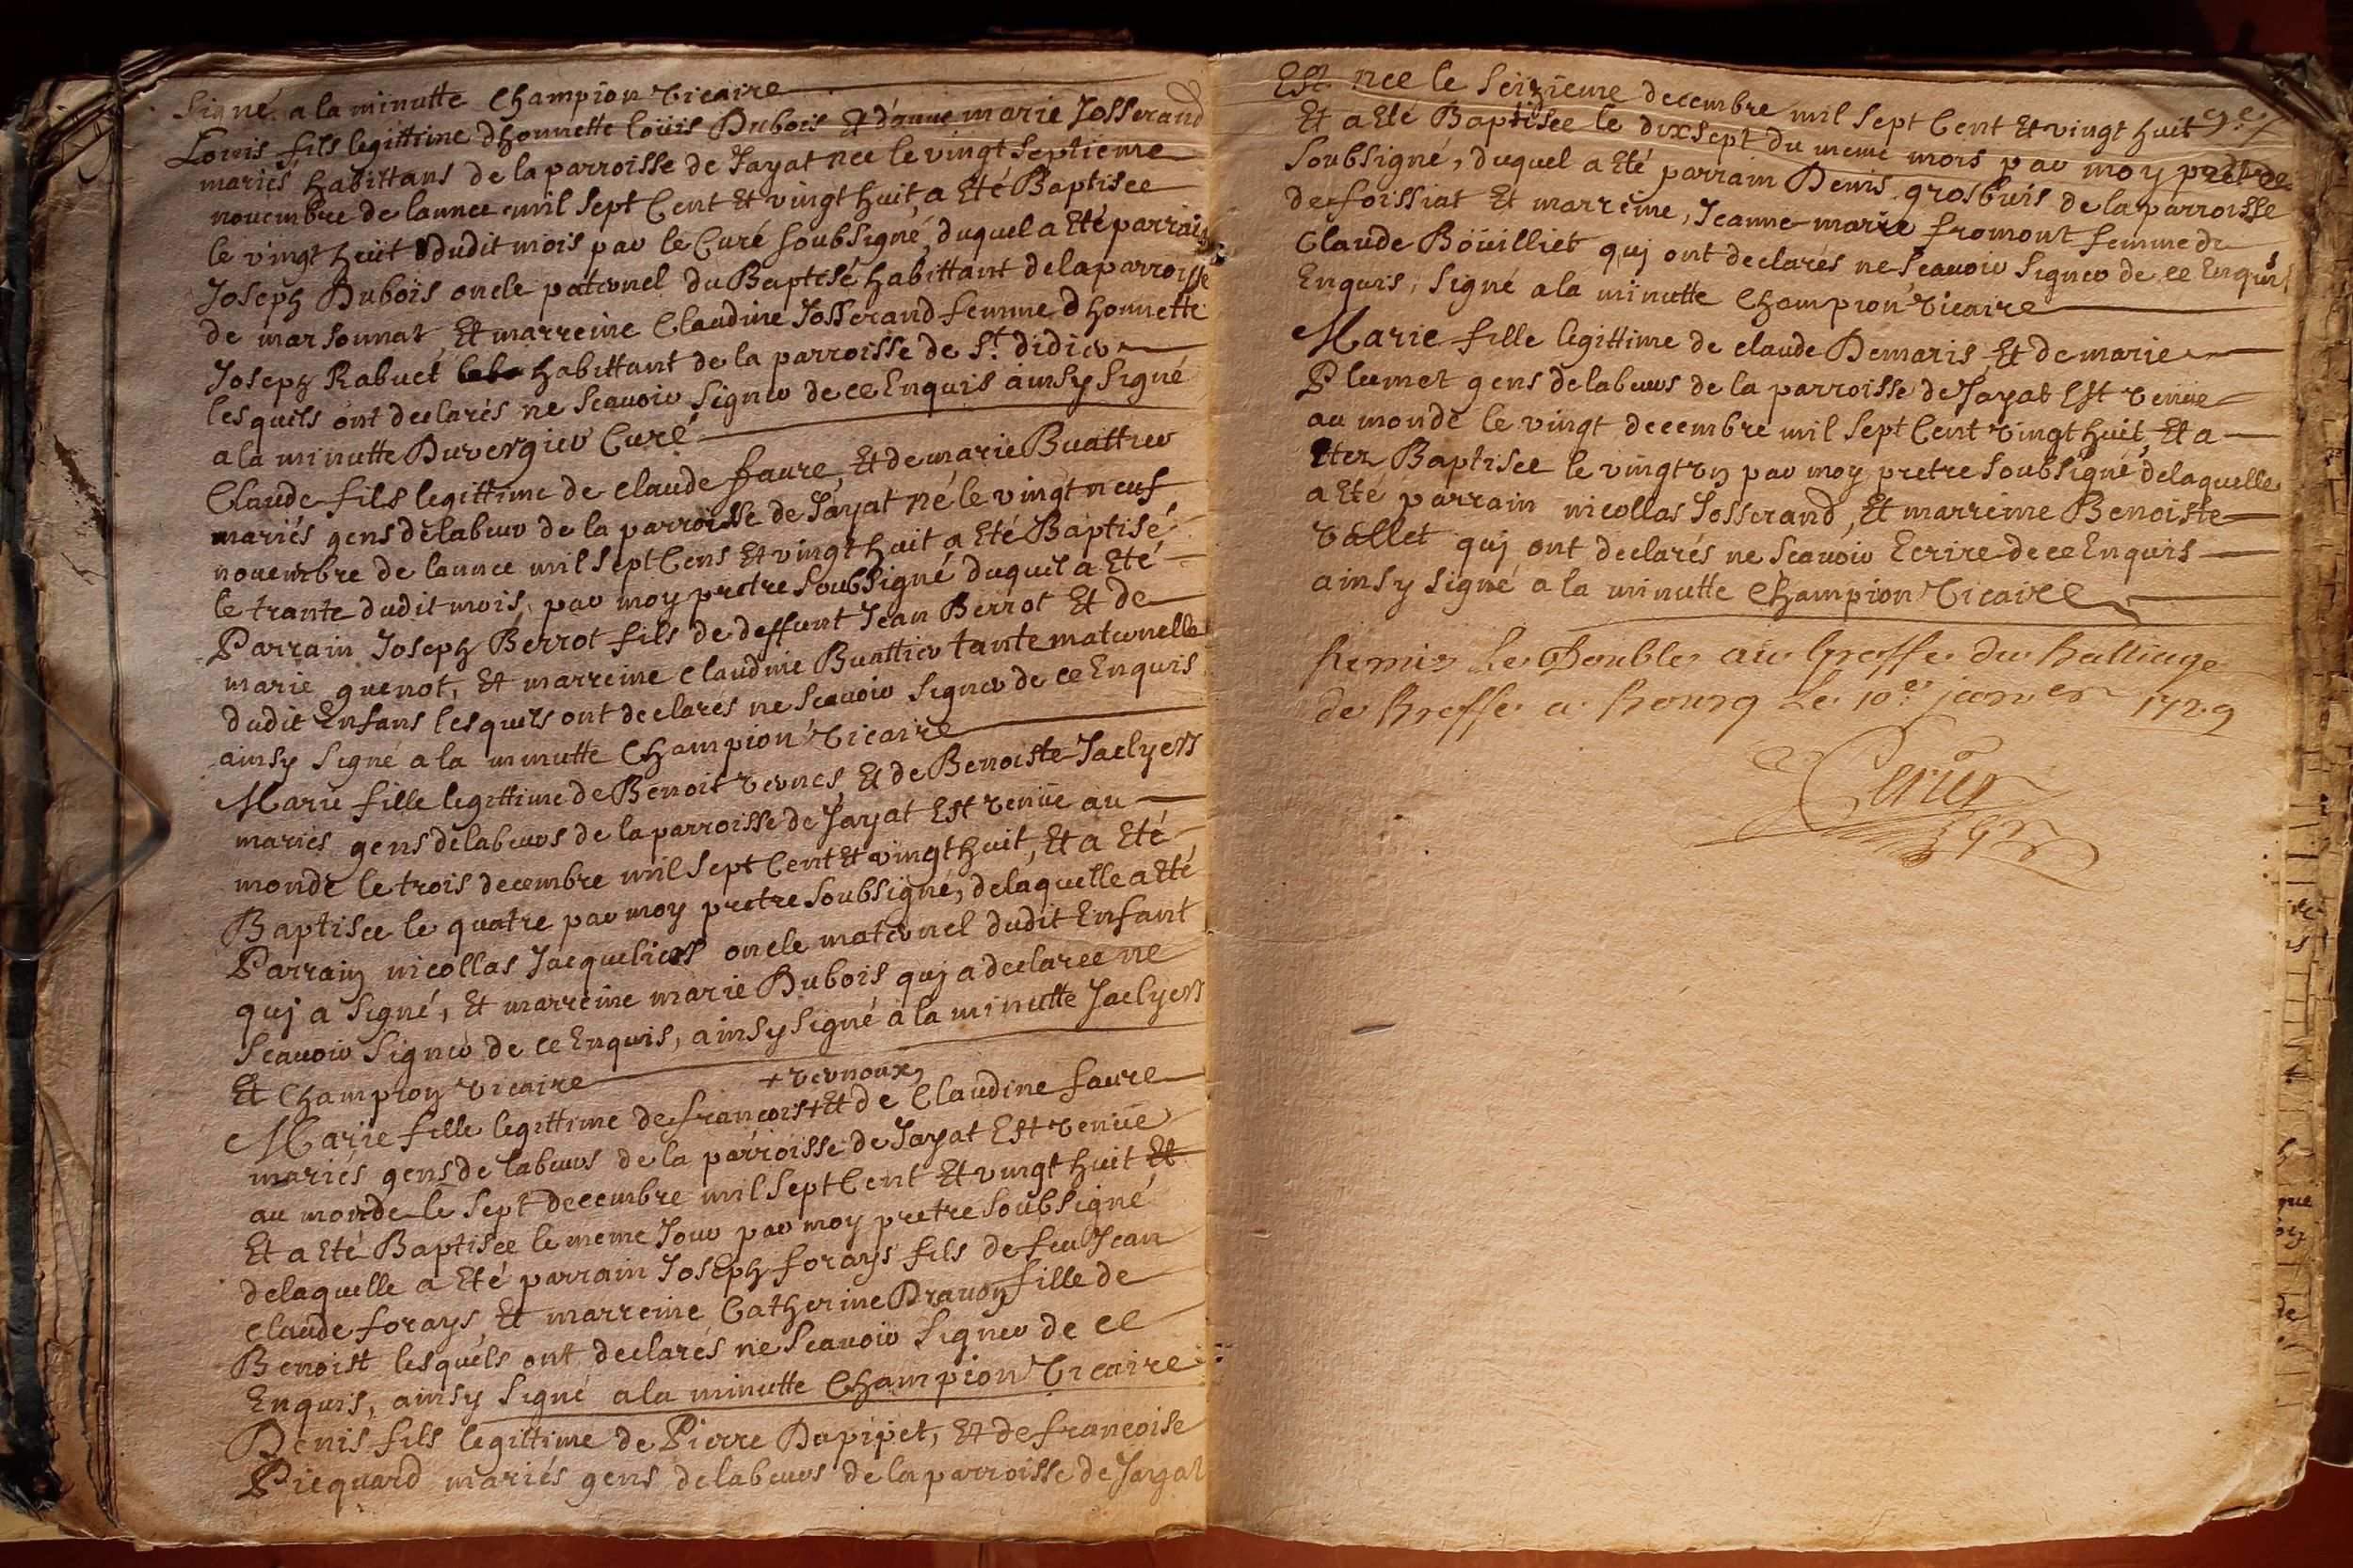 Signé a la minutte Champion Vicaire
Louis fils legittime dhonnette loüis Dubois Et danne marie Josserand
mariés habittans de la parroisse de Jayat nee le vingt septieme
novembre de lannee mil sept Cent Et vingt huit, a Eté Baptisee
le vingt huit dudit mois par le Curé soubsigné, duquel a Eté parrain
Joseph Dubois oncle paternel du Baptisé habittant de la parroisse
de marsonnat, Et marreine Claudine Josserand femme dhonnette
Joseph Rabuet habittant de la parroisse de St. didier
lesquels ont declarés ne Scavoir Signer de ce Enquis ainsy Signé
a la minutte Duvergier Curé
Claude fils legittime de claude faure, Et de marie Buattier
mariés gens de labeur de la parroisse de Jayat né le vingt neuf
novembre de lannee mil sept Cens Et vingt huit a Eté Baptisé
le trante dudit mois, par moy pretre Soubsigné duquel a Eté
Parrain Joseph Berrot fils de deffunt Jean Berrot Et de
marie guenot, Et marreine Claudine Buattier tante maternelle
dudit Enfans lesquels ont declarés ne Scavoir Signer de ce Enquis
ainsy Signé a la minutte Champion Vicaire
Marie fille legittime de Benoit Vernes, Et de Benoiste Jaclyers
mariés gens de labeurs de la parroisse de Jayat Est venüe au
monde le trois decembre mil sept Cent Et vingt huit, Et a Eté
Baptisee le quatre par moy pretre Soubsigné, de laquelle a Eté
Parrain nicollas Jacqueliers oncle maternel dudit Enfant
quj a Signé, Et marreine marie Dubois quj a declaree ne
Scavoir Signer de ce Enquis, ainsy Signé a la minutte Jaclyers
Et Champion Vicaire
+ vernoux,
Marie fille legittime de francois + Et de Claudine faure
mariés gens de labeurs de la parroisse de Jayat Est venüe
au monde le Sept decembre mil Sept Cent Et vingt huit Et
Et a Eté Baptisee le meme Jour par moy pretre Soubsigné
de laquelle a Eté parrain Joseph forays fils de feu Jean
claude forays, Et marreine Catherine Dravon fille de
Benoist lesquels ont declarés ne Scavoir Signer de ce
Enquis, ainsy Signé a la minutte Champion Vicaire
Denis fils legittime de Pierre Dapipet, Et de francoise
Picquard mariés gens de labeurs de la parroisse de Jayat
Est nee le Seizieme decembre mil Sept Cent Et vingt huit
Et a Eté Baptisee le dixsept du meme mois par moy pretre
Soubsigné, duquel a Eté parrain Denis grosbuis de la parroisse
de foissiat Et marreine, Jeanne marie fromont femme de
Claude Böuilliet quj ont declarés ne Scavoir Signer de ce Enquis
Enquis, Signé a la minutte Champion Vicaire
Marie fille legittime de claude Demaris, Et de marie
Plumet gens de labeurs de la parroisse de Jayat Est venüe
au monde le vingt decembre mil Sept Cent vingt huit, Et a
Eter Baptisee le vingt vn par moy pretre Soubsigné de laquelle
a Eté parrain nicollas Josserand, Et marreine Benoiste
Vallet quj ont declarés ne Scavoir Ecrire de ce Enquis
ainsy Signé a la minutte Champion Vicaire
Remis Le Double au Greffe du Balliage
de Bresse a Bourg Le 10e janvier 1729